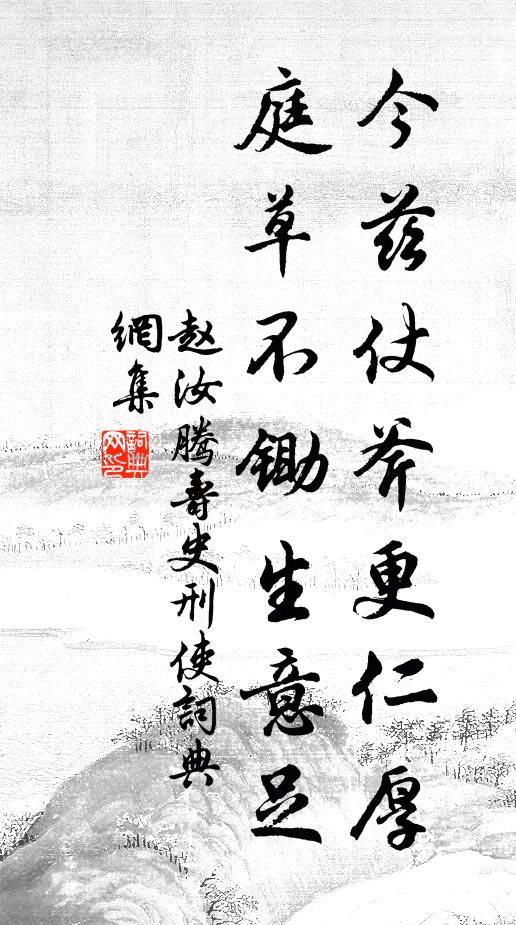 今兹仗斧更仁厚
庭草不锄生意足
赵汝腾壽史刑使詞典
網集
詞典網印